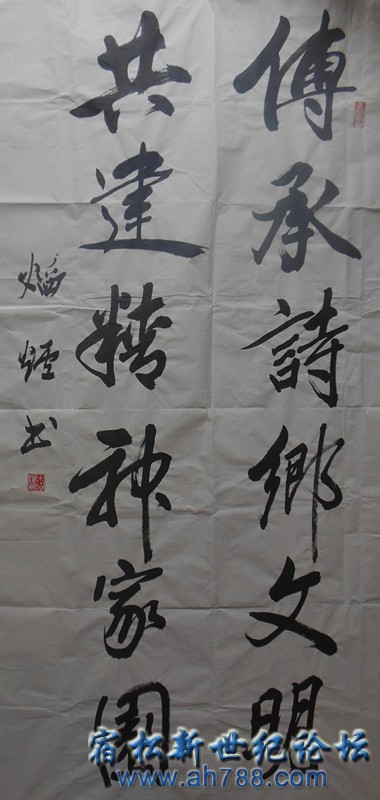 傳承詩鄉文明
共建精神家園
書
宿松新世纪论坛
www.ah788.com